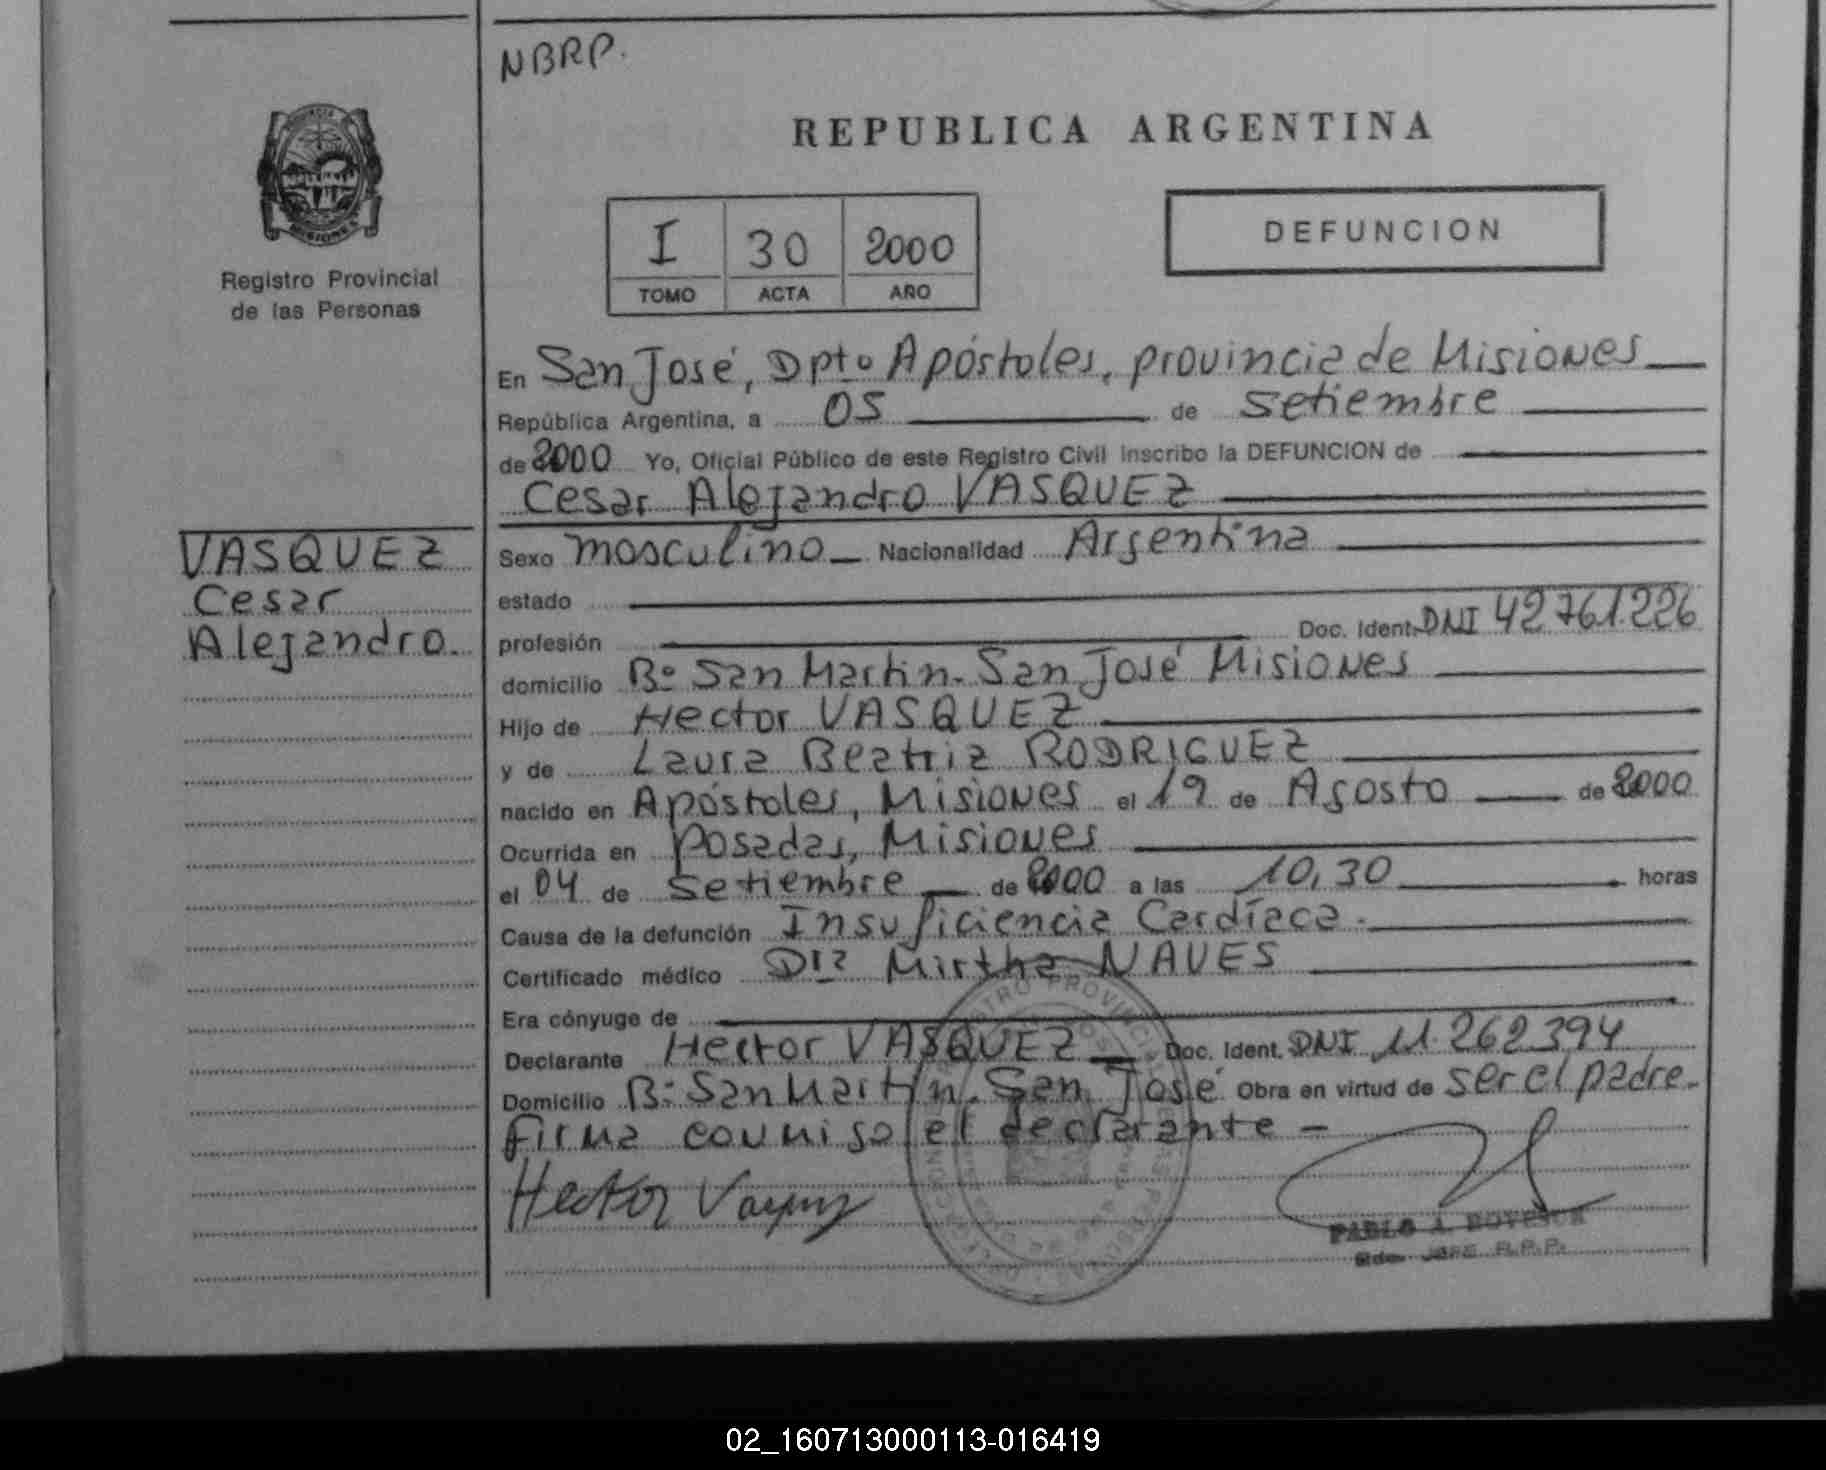 NBRP.
REPUBLICA ARGENTINA
MISIONES
Registro Provincial
de las Personas
I 30 2000
TOMO ACTA AÑO
DEFUNCION
En San José, Dpto Apóstoles, provincia de Misiones
República Argentina, a 05 de Setiembre
de 2000 Yo, Oficial Público de este Registro Civil inscribo la DEFUNCION de
Cesar Alejandro VASQUEZ
VASQUEZ
Cesar
Alejandro.
Sexo mosculino Nacionalidad Argentina
estado
profesión Doc. Ident. DNI 42.761.226
domicilio Bº San Martin. San José Misiones
Hijo de Hector VASQUEZ
y de Laura Beatriz RODRIGUEZ
nacido en Apóstoles, Misiones el 19 de Agosto de 2000
Ocurrida en Posadas, Misiones
el 04 de Setiembre de 2000 a las 10,30 horas
Causa de la defunción Insuficiencia Cardíaca.
Certificado médico Dra Mirtha NAVES
Era cónyuge de
Declarante Hector VASQUEZ Doc. Ident. DNI 11.262.394
Domicilio Bº San Martin. San José Obra en virtud de ser el padre.
Firma conmigo el declarante -
Hector
PABLO
JEFE R.P.P.
02_160713000113-016419